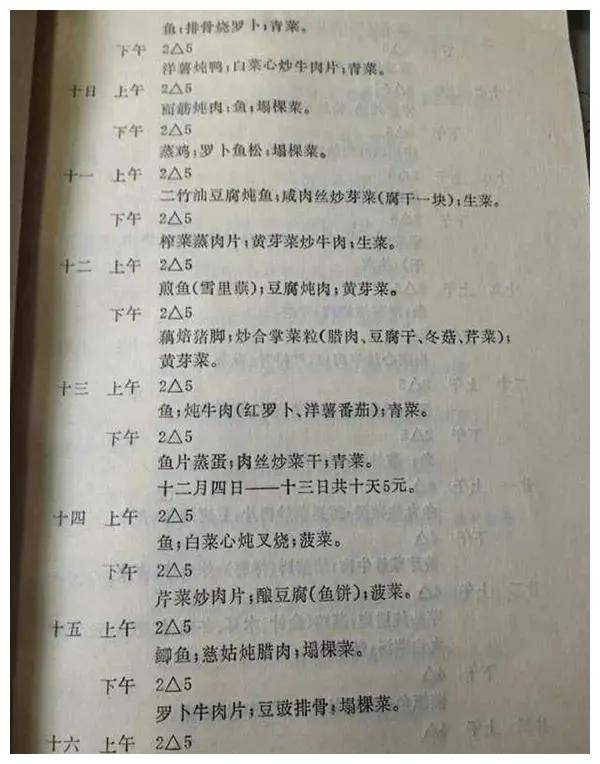 鱼;排骨烧罗卜;青菜。
下午 2△5
洋薯炖鸭;白菜心炒牛肉片;青菜。
十日 上午 2△5
面筋炖肉;鱼;塌棵菜。
下午 2△5
蒸鸡;罗卜鱼松;塌棵菜。
十一 上午 2△5
二竹油豆腐炖鱼;咸肉丝炒芽菜(腐干一块);生菜。
下午 2△5
榨菜蒸肉片;黄芽菜炒牛肉;生菜。
十二 上午 2△5
煎鱼(雪里蕻);豆腐炖肉;黄芽菜。
下午 2△5
藕焙猪脚;炒合掌菜粒(腊肉、豆腐干、冬菇、芹菜);
黄芽菜。
十三 上午 2△5
鱼;炖牛肉(红罗卜、洋薯番茄);青菜。
下午 2△5
鱼片蒸蛋;肉丝炒菜干;青菜。
十二月四日——十三日共十天5元。
十四 上午 2△5
鱼;白菜心炖叉烧;菠菜。
下午 2△5
芹菜炒肉片;酿豆腐(鱼饼);菠菜。
十五 上午 2△5
鲫鱼;慈姑炖腊肉;塌棵菜。
下午 2△5
罗卜牛肉片;豆豉排骨;塌棵菜。
十六 上午 2△5